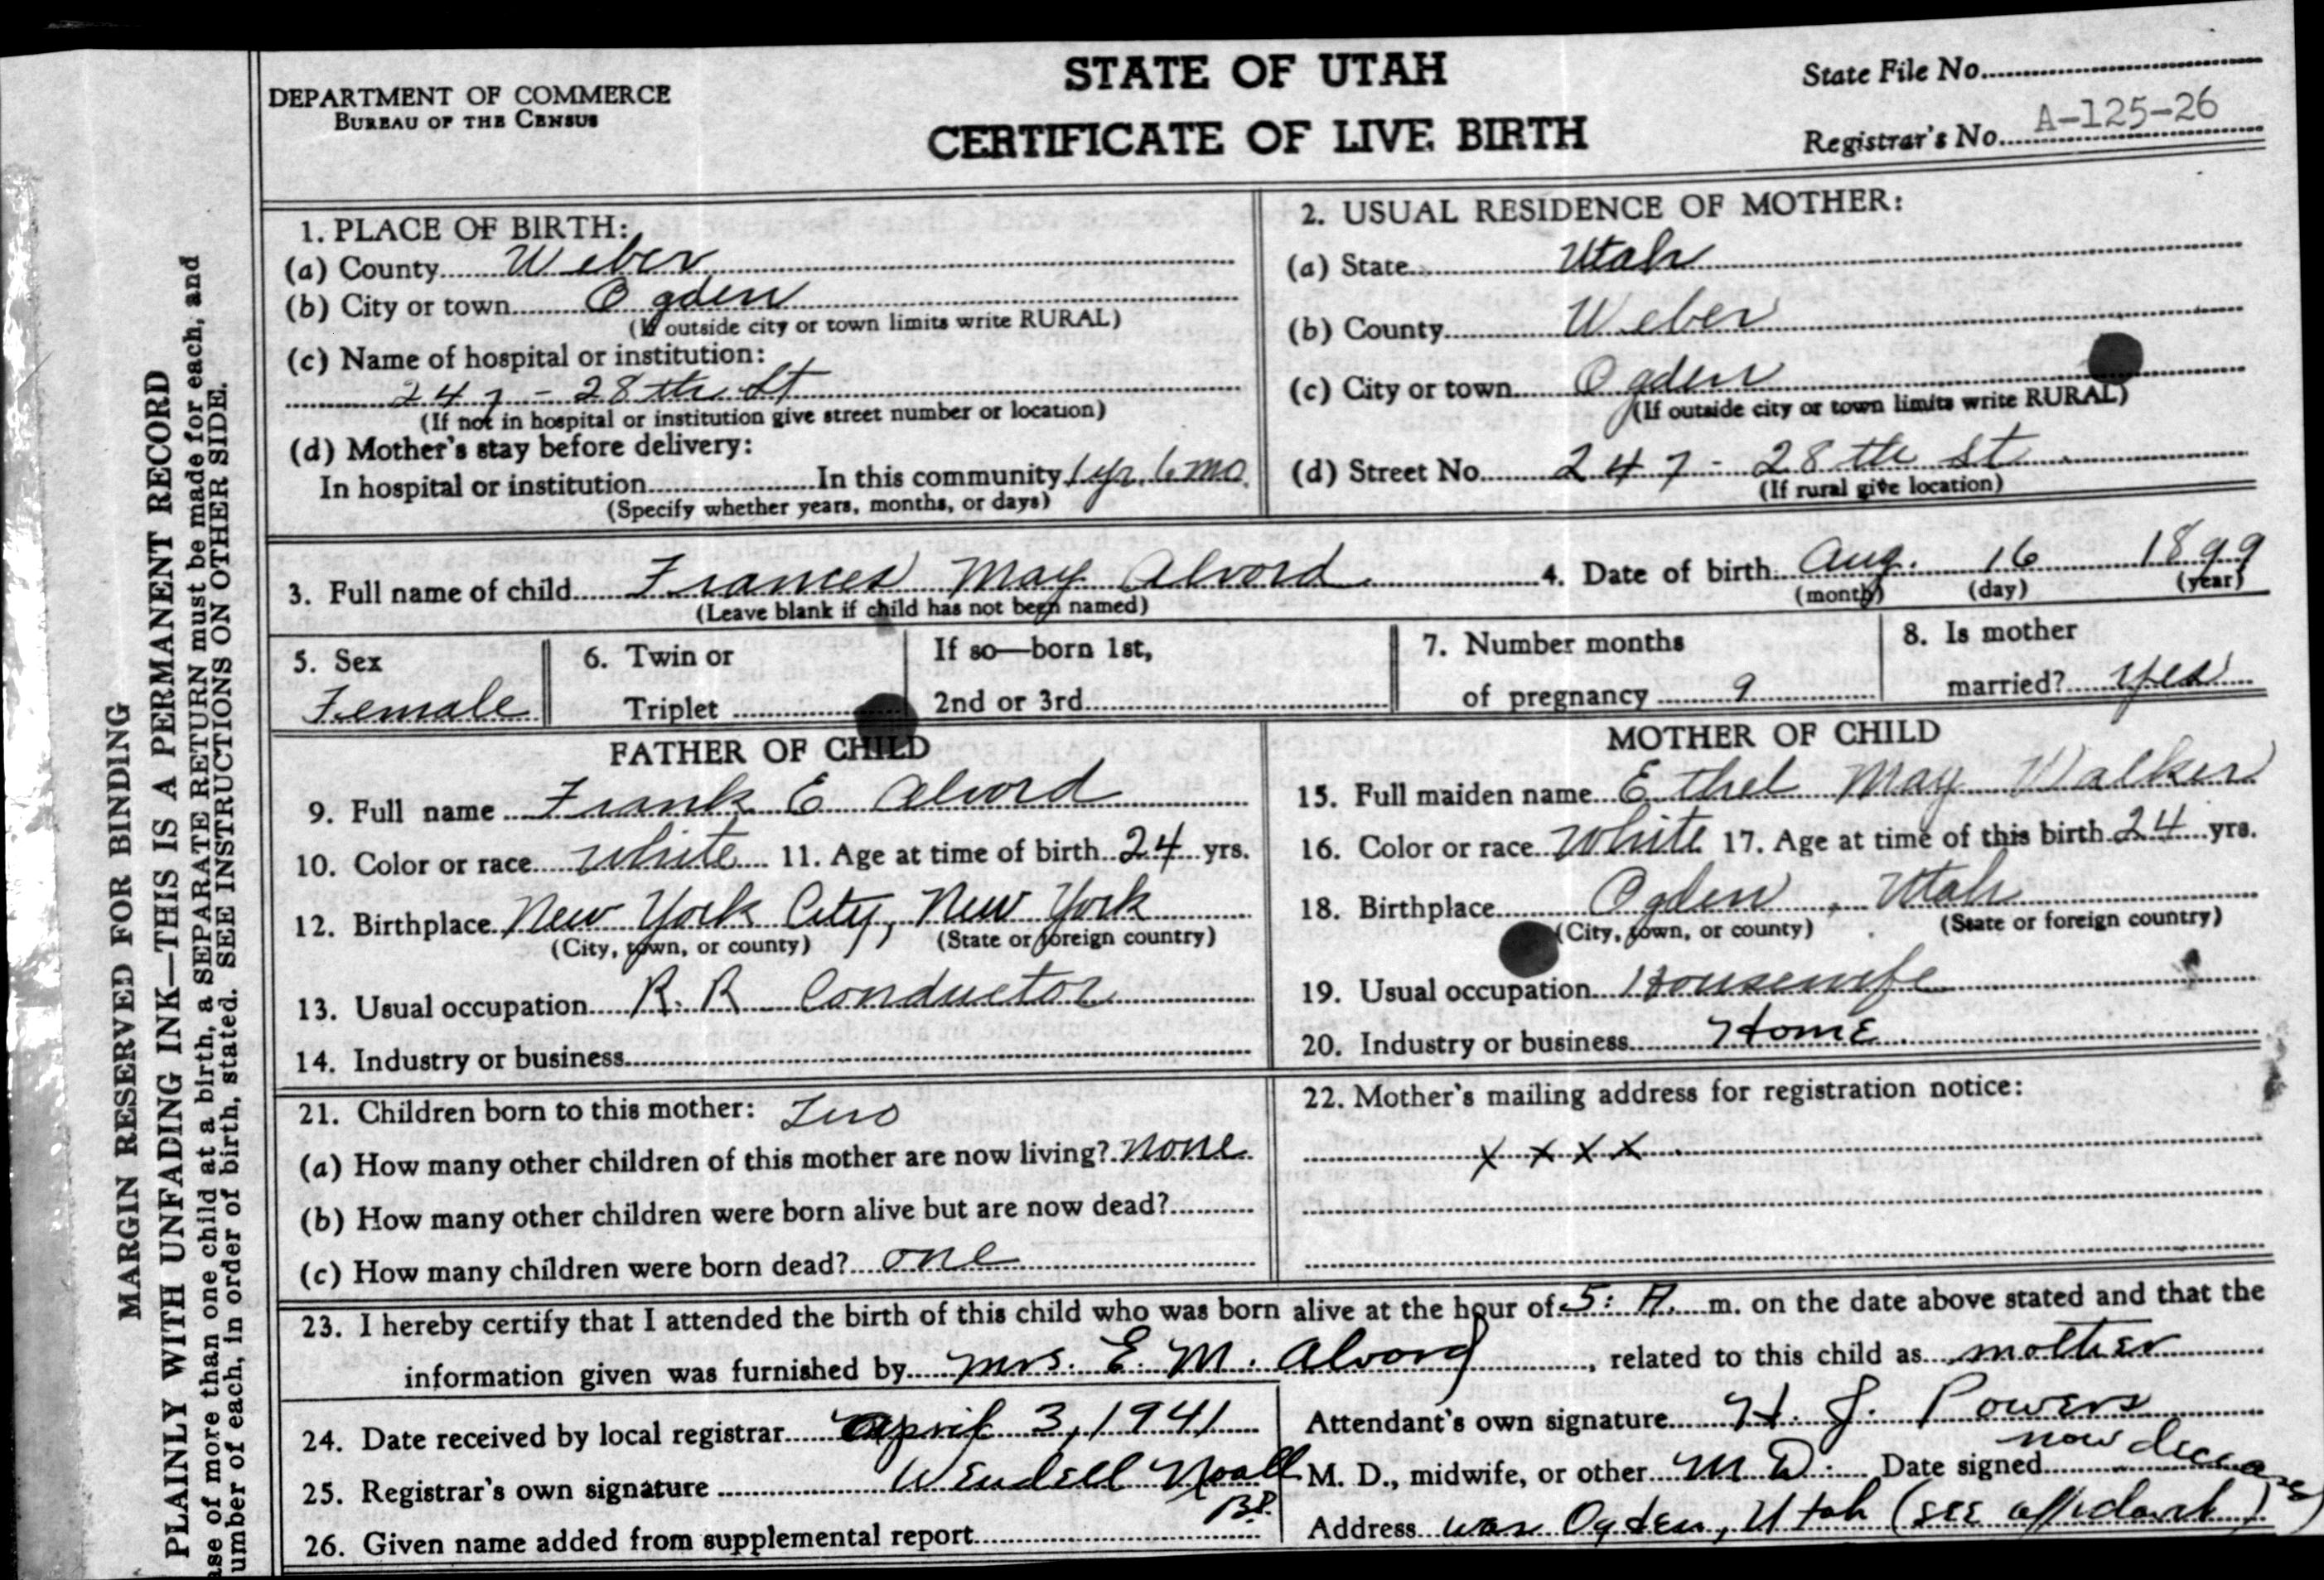 STATE OF UTAH
CERTIFICATE OF LIVE BIRTH
DEPARTMENT OF COMMERCE
BUREAU OF THE CENSUS
State File No.
Registrar's No. A-125-26
1. PLACE OF BIRTH:
(a) County Weber
(b) City or town Ogden
(If outside city or town limits write RURAL)
(c) Name of hospital or institution:
247 - 28th St
(If not in hospital or institution give street number or location)
(d) Mother's stay before delivery:
In hospital or institution In this community 1 yr. 6 mo.
(Specify whether years, months, or days)
2. USUAL RESIDENCE OF MOTHER:
(a) State Utah
(b) County Weber
(c) City or town Ogden
(If outside city or town limits write RURAL)
(d) Street No. 247 - 28th St
(If rural give location)
3. Full name of child Frances May Alvord 4. Date of birth Aug. 16 1899
(Leave blank if child has not been named) (month) (day) (year)
5. Sex
Female
6. Twin or
Triplet
If so—born 1st,
2nd or 3rd
7. Number months
of pregnancy 9
8. Is mother
married? yes
FATHER OF CHILD
9. Full name Frank E Alvord
10. Color or race White 11. Age at time of birth 24 yrs.
12. Birthplace New York City, New York
(City, town, or county) (State or foreign country)
13. Usual occupation R. R Conductor
14. Industry or business
MOTHER OF CHILD
15. Full maiden name Ethel May Walker
16. Color or race White 17. Age at time of this birth 24 yrs.
18. Birthplace Ogden, Utah
(City, town, or county) (State or foreign country)
19. Usual occupation Housewife
20. Industry or business Home
21. Children born to this mother: Two
(a) How many other children of this mother are now living? none
(b) How many other children were born alive but are now dead?
(c) How many children were born dead? one
22. Mother's mailing address for registration notice:
x x x x
23. I hereby certify that I attended the birth of this child who was born alive at the hour of 5: A. m. on the date above stated and that the
information given was furnished by Mrs. E. M. Alvord, related to this child as mother
24. Date received by local registrar April 3, 1941
25. Registrar's own signature Wendell Noall
B.P.
26. Given name added from supplemental report
Attendant's own signature H. J. Powers
M. D., midwife, or other M D. Date signed now deceased
Address was Ogden, Utah (see affidavit)
MARGIN RESERVED FOR BINDING
PLAINLY WITH UNFADING INK—THIS IS A PERMANENT RECORD
ase of more than one child at a birth, a SEPARATE RETURN must be made for each, and
umber of each, in order of birth, stated. SEE INSTRUCTIONS ON OTHER SIDE.